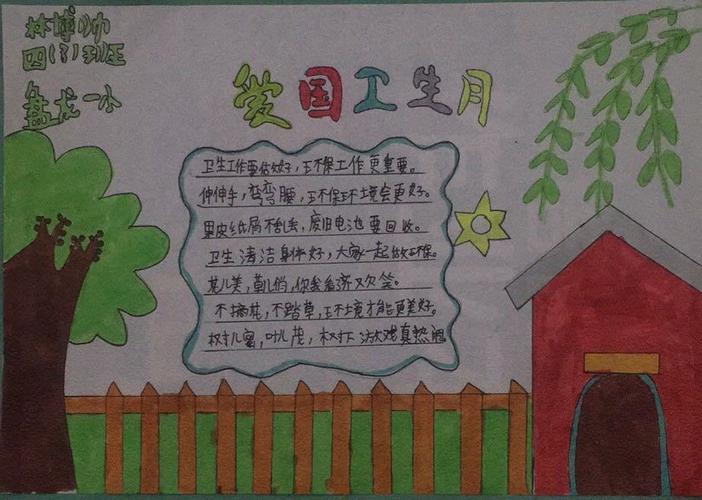 林博帅
四(1)班
盘龙一小
爱国卫生月
卫生工作要做好,环保工作更重要。
伸伸手,弯弯腰,环保环境会更好。
果皮纸屑不乱丢,废旧电池要回收。
卫生清洁身体好,大家一起做环保。
花儿美,草儿俏,你我爱
不摘花,不踏草,环境才能更美好。
树儿密,叶儿茂,树下游戏真热闹